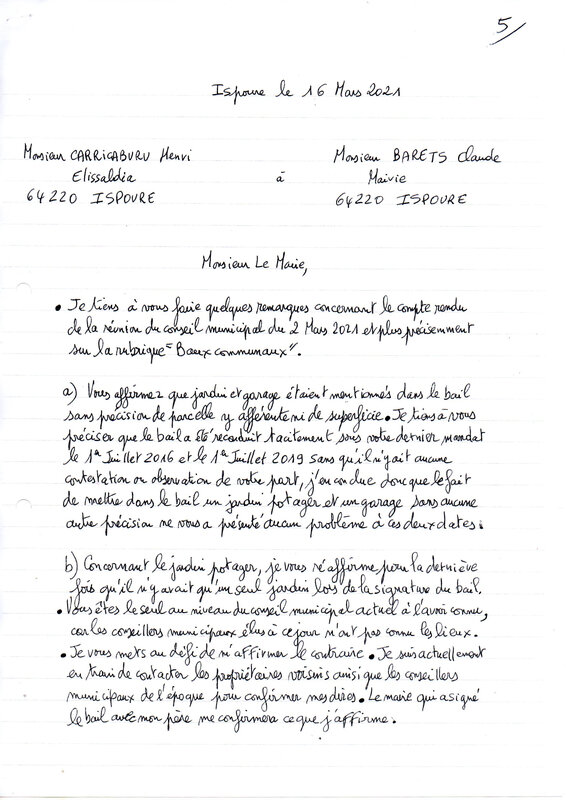 5/
Ispoure le 16 Mars 2021
Monsieur CARRICABURU Henri
Monsieur BARETS Claude
Elissaldia
à
Mairie
64220 ISPOURE
64220 ISPOURE
Monsieur Le Maire,
• Je tiens à vous faire quelques remarques concernant le compte rendu
de la réunion du conseil municipal du 2 Mars 2021 et plus précisemment
sur la rubrique "Baux communaux".
a) Vous affirmez que jardin et garage étaient mentionnés dans le bail
sans précision de parcelle y afférente ni de superficie. Je tiens à vous
préciser que le bail a été reconduit tacitement sous votre dernier mandat
le 1er Juillet 2016 et le 1er Juillet 2019 sans qu'il n'y ait aucune
contestation ou observation de votre part, j'en conclue donc que le fait
de mettre dans le bail un jardin potager et un garage sans aucune
autre précision ne vous a présenté aucun problème à ces deux dates.
b) Concernant le jardin potager, je vous réaffirme pour la dernière
fois qu'il n'y avait qu'un seul jardin lors de la signature du bail.
• Vous êtes le seul au niveau du conseil municipal actuel à l'avoir connu,
car les conseillers municipaux élus à ce jour n'ont pas connu les lieux.
• Je vous mets au défi de m'affirmer le contraire. Je suis actuellement
en train de contacter les propriétaires voisins ainsi que les conseillers
municipaux de l'époque pour confirmer mes dires. Le maire qui a signé
le bail avec mon père me confirmera ce que j'affirme.